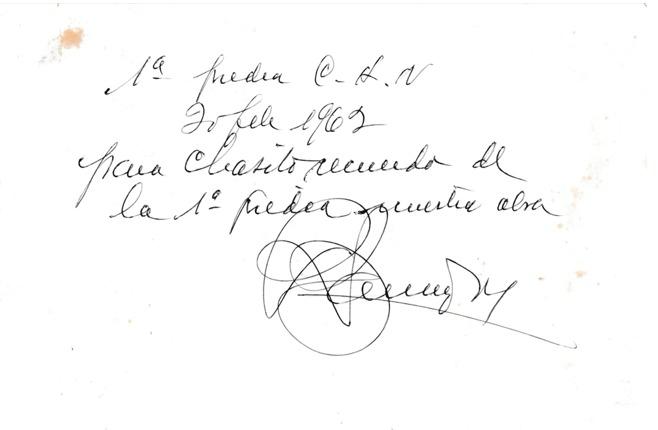 1ª piedra C. H. N
20 feb 1962
para Chasito recuerdo de
la 1ª piedra nuestra obra